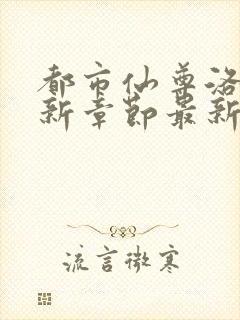 都市仙尊洛
新章节最新
流言微寒